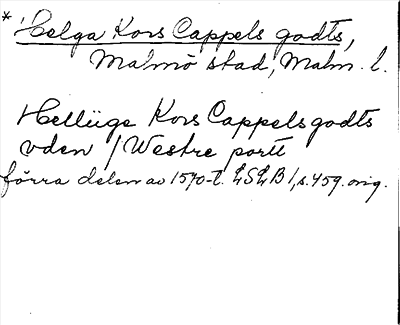 * 'Helga Kors Cappels godts,
Malmö stad, Malm. l.
Hellüge Kors Cappels godts
vden / Westre portt
förra delen av 1570-t. LSLB 1, s. 459. orig.